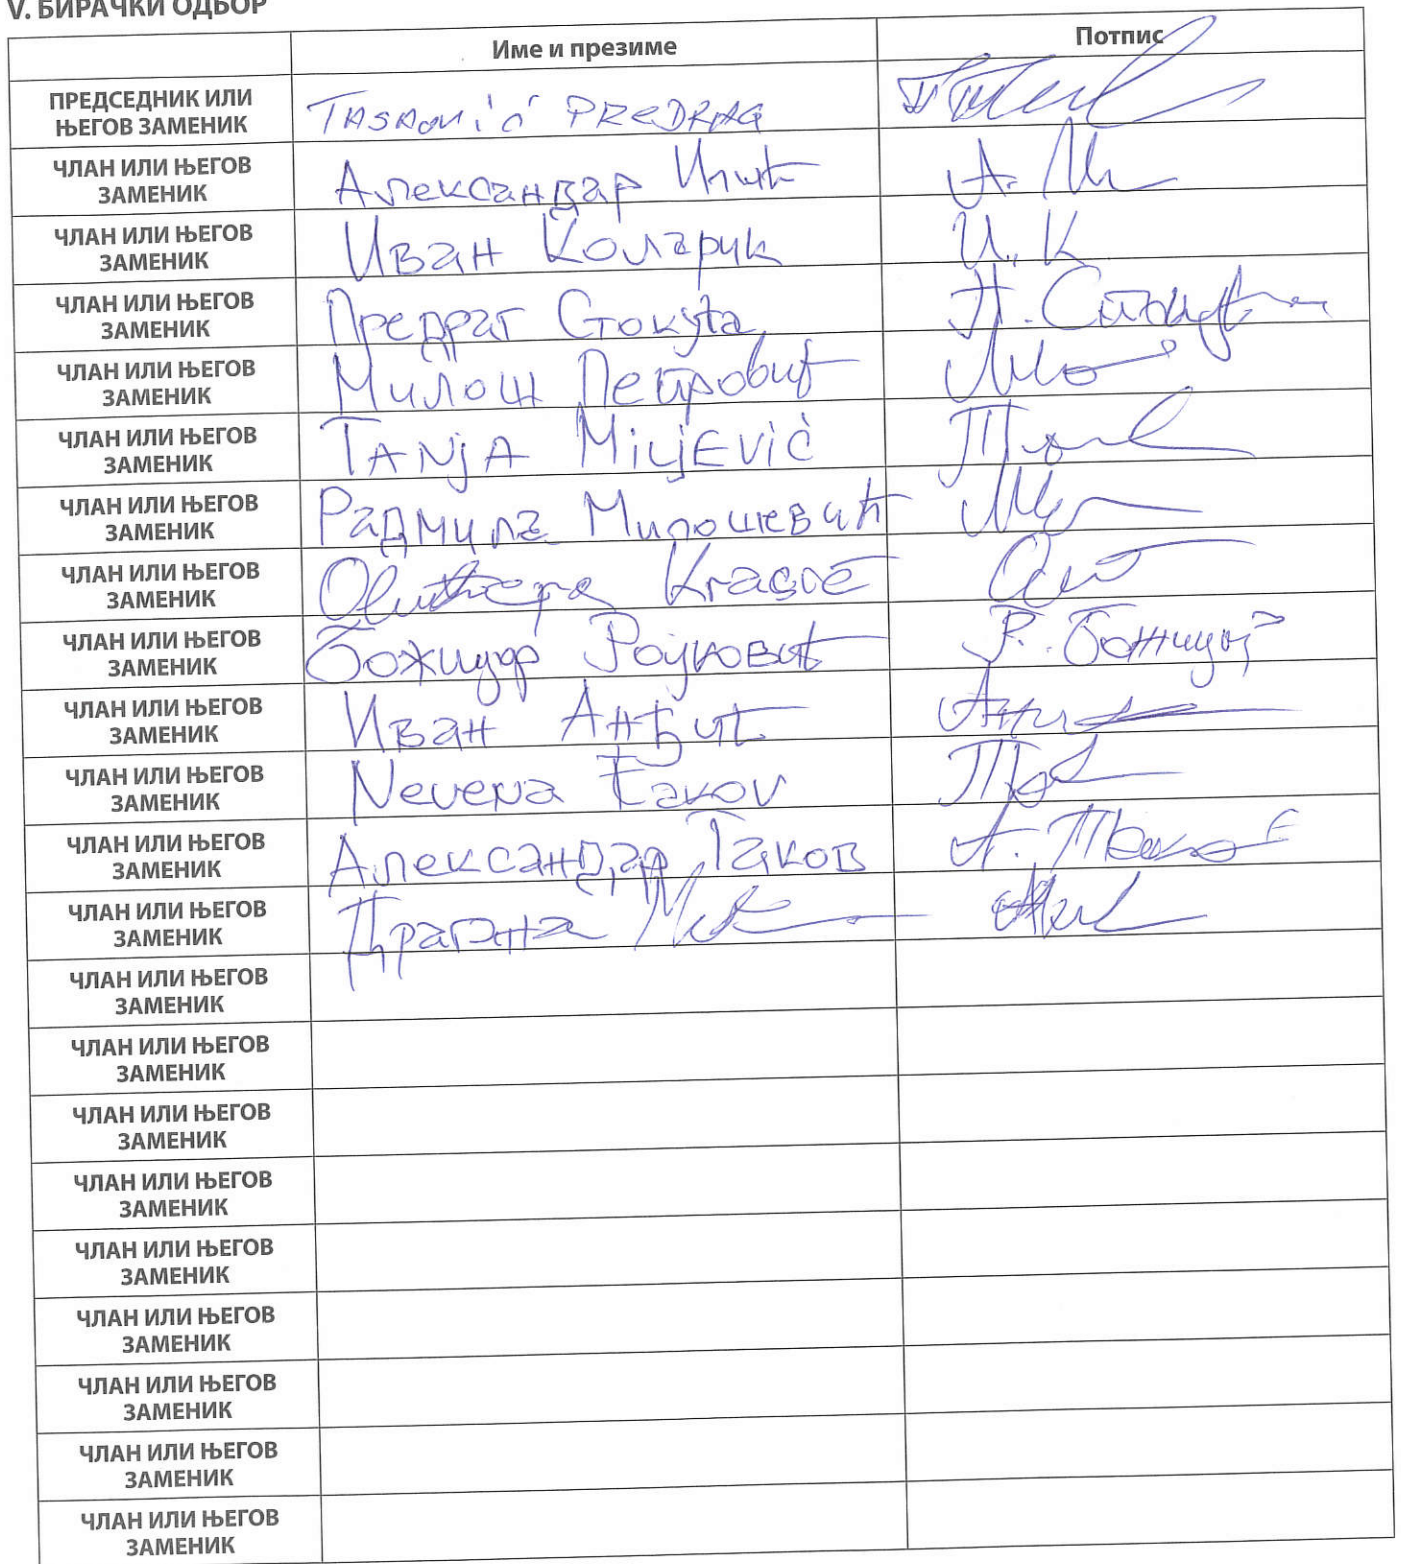 V. БИРАЧКИ ОДБОР
Име и презиме Потпис
ПРЕДСЕДНИК ИЛИ
ЊЕГОВ ЗАМЕНИК
PREDRAG
ЧЛАН ИЛИ ЊЕГОВ
ЗАМЕНИК
Александар Илић
А.
ЧЛАН ИЛИ ЊЕГОВ
ЗАМЕНИК
Иван Коларик
И. К
ЧЛАН ИЛИ ЊЕГОВ
ЗАМЕНИК
Предраг Стокућа
П.
ЧЛАН ИЛИ ЊЕГОВ
ЗАМЕНИК
Милош Петровић
ЧЛАН ИЛИ ЊЕГОВ
ЗАМЕНИК
TANJA MILJEVIĆ
ЧЛАН ИЛИ ЊЕГОВ
ЗАМЕНИК
Радмила Милошевић
ЧЛАН ИЛИ ЊЕГОВ
ЗАМЕНИК
ЧЛАН ИЛИ ЊЕГОВ
ЗАМЕНИК
Божидар Рајковић
Р. Божидар
ЧЛАН ИЛИ ЊЕГОВ
ЗАМЕНИК
Иван Анђић
ЧЛАН ИЛИ ЊЕГОВ
ЗАМЕНИК
Nevena
ЧЛАН ИЛИ ЊЕГОВ
ЗАМЕНИК
Александар Таков
А.
ЧЛАН ИЛИ ЊЕГОВ
ЗАМЕНИК
Драгана
ЧЛАН ИЛИ ЊЕГОВ
ЗАМЕНИК
ЧЛАН ИЛИ ЊЕГОВ
ЗАМЕНИК
ЧЛАН ИЛИ ЊЕГОВ
ЗАМЕНИК
ЧЛАН ИЛИ ЊЕГОВ
ЗАМЕНИК
ЧЛАН ИЛИ ЊЕГОВ
ЗАМЕНИК
ЧЛАН ИЛИ ЊЕГОВ
ЗАМЕНИК
ЧЛАН ИЛИ ЊЕГОВ
ЗАМЕНИК
ЧЛАН ИЛИ ЊЕГОВ
ЗАМЕНИК
ЧЛАН ИЛИ ЊЕГОВ
ЗАМЕНИК